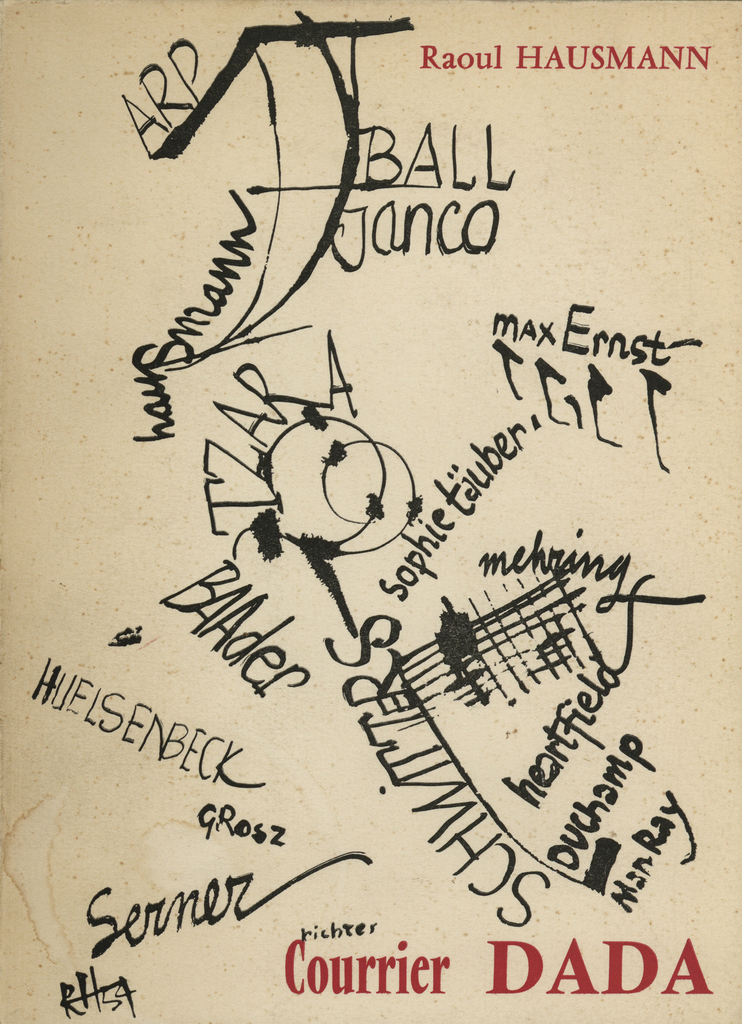 Raoul HAUSMANN
ARP
BALL
janco
hausmann
max Ernst
TZARA
sophie täuber.
mehring
BAAder
SCHWITTERS
HUELSENBECK
heartfield
Duchamp
Man Ray
GRosz
Serner
richter
Courrier DADA